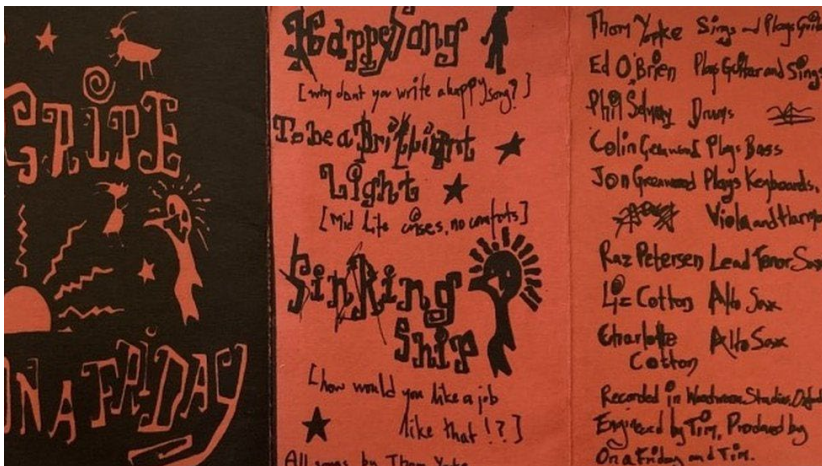 GRIPE
ON A FRiDAY
Happy Song
[why dont you write a happy song?]
To be a Brilliant
Light
[Mid Life crises, no comforts]
Sinking
Ship
[how would you like a job
like that!?]
All songs by Thom Yorke
Thom Yorke Sings and Plays Guitar
Ed O'Brien Plays Guitar and Sings
Phil Selway Drums
Colin Greenwood Plays Bass
Jon Greenwood Plays Keyboards,
Viola and Harmo
Raz Petersen Lead Tenor Sax
Liz Cotton Alto Sax
Charlotte Alto Sax
Cotton
Recorded in Woodworm Studios, Oxford
Engineered by Tim, Produced by
On a Friday and Tim.